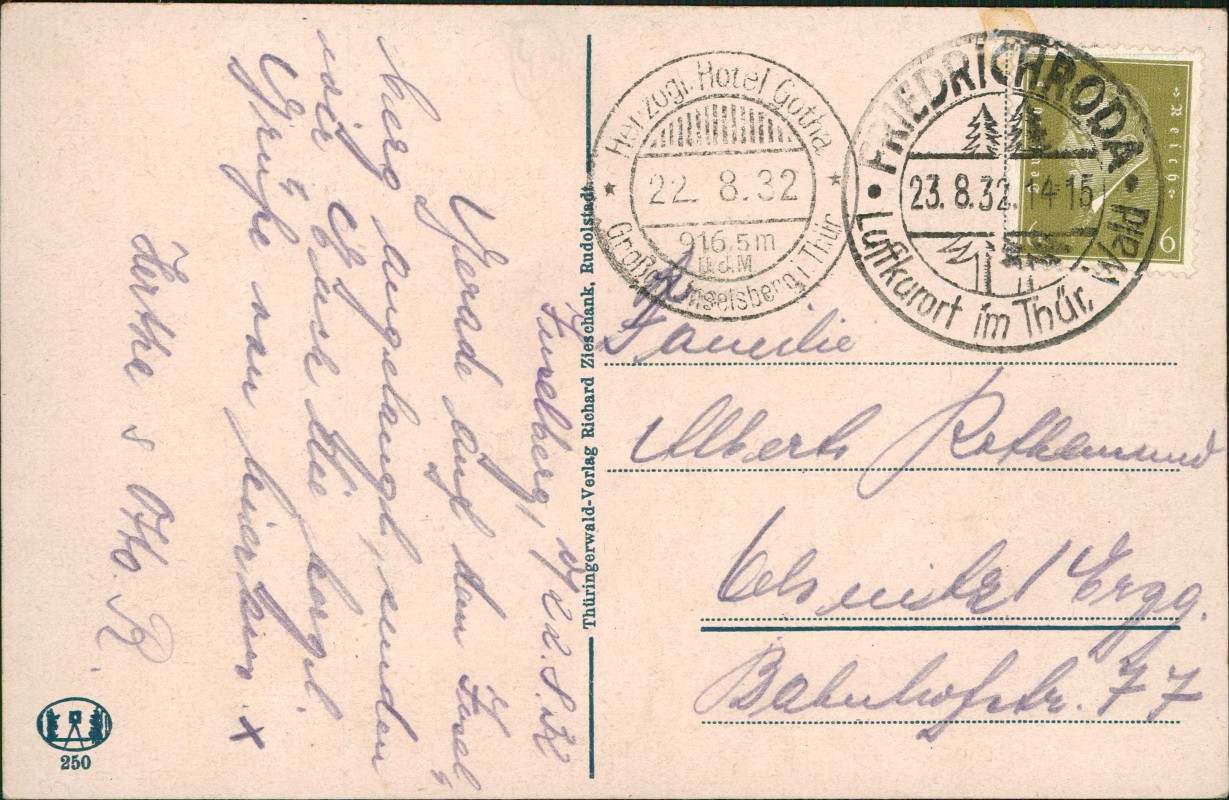 Inselberg, d/22.8.32
Gerade auf dem Insel
berg angelangt, senden
wir Euch die herzl.
Grüße von hier aus.
Herthe u Otto. R.
Thüringerwald-Verlag Richard Zieschank, Rudolstadt.
250
Herzogl. Hotel Gotha
22. 8. 32
916,5m
ü.d.M
Großer Inselsberg i. Thür
FRIEDRICHRODA
23. 8. 32. 14-15
Luftkurort im Thür. Wald
Reich
6
Familie
Alberts Rothemund
Oelsnitz / Erzg.
Bahnhofstr. 77